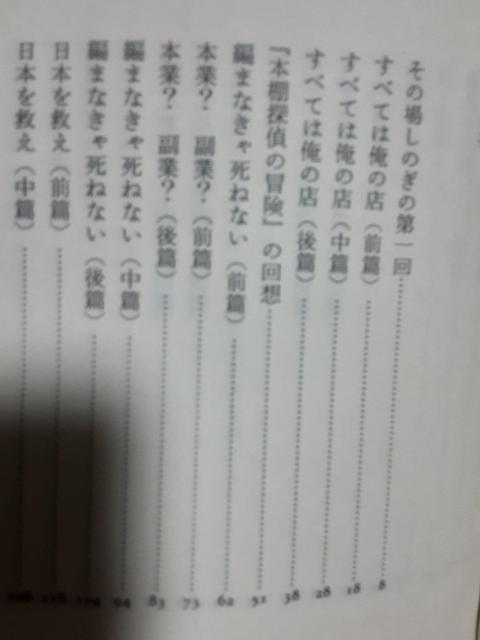 その場しのぎの第一回……8
すべては俺の店（前篇）……18
すべては俺の店（中篇）……28
すべては俺の店（後篇）……38
『本棚探偵の冒険』の回想……51
編まなきゃ死ねない（前篇）……62
本業？　副業？（前篇）……73
本業？　副業？（後篇）……83
編まなきゃ死ねない（中篇）……94
編まなきゃ死ねない（後篇）……104
日本を救え（前篇）……116
日本を救え（中篇）……